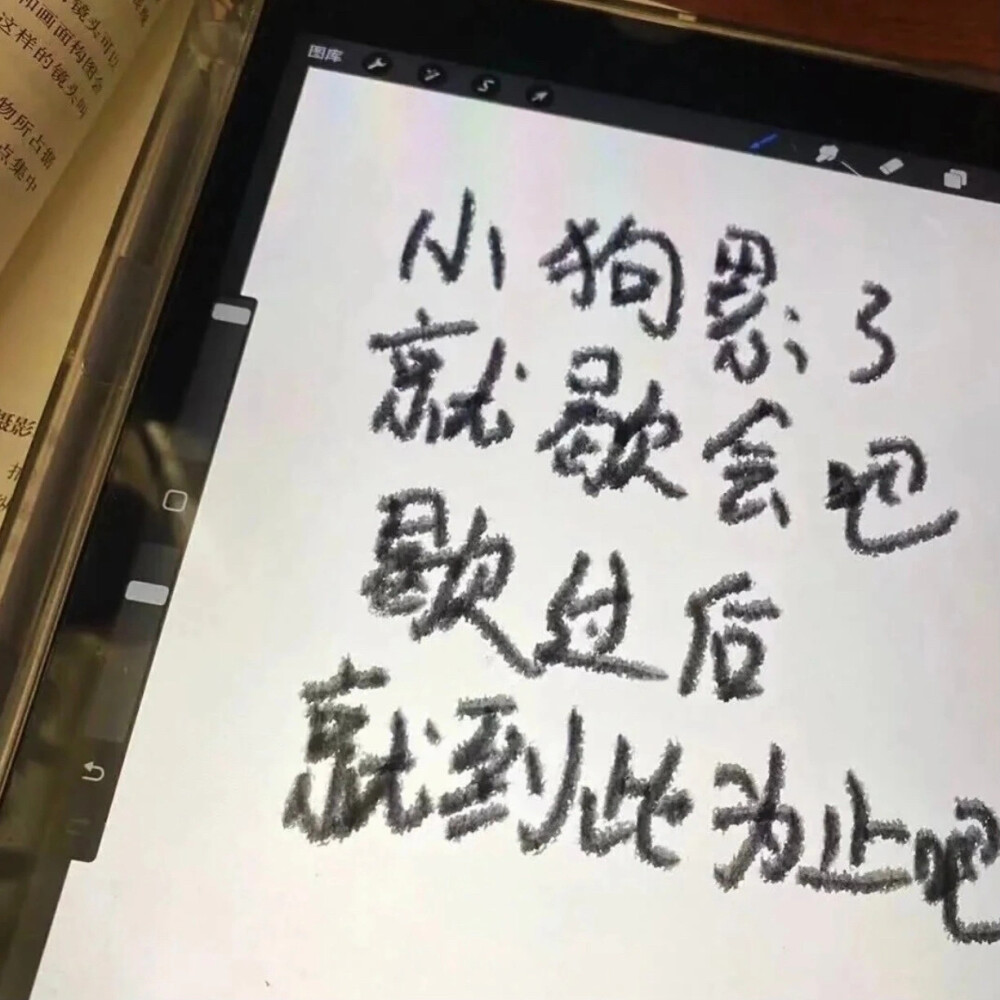 镜头可以
和画面构图会
这样的镜头
物所占据
点集中
摄影
图库
小狗累了
就歇会吧
歇过后
就到此为止吧